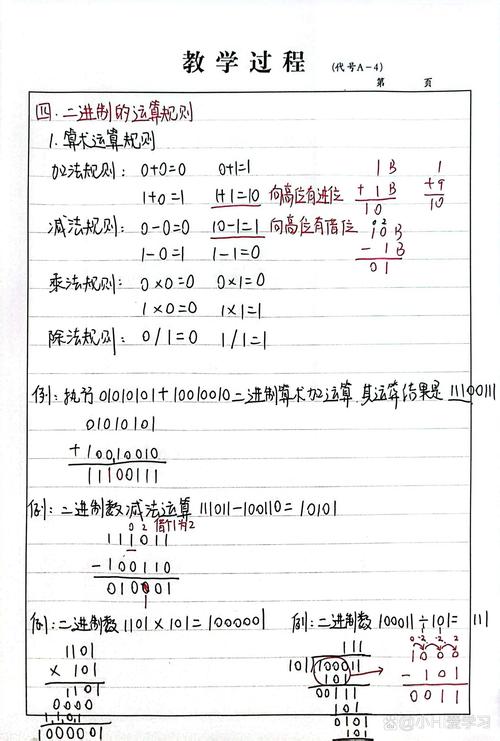 教学过程 (代号A-4)
第 页
四.二进制的运算规则
1.算术运算规则
加法规则: 0+0=0 0+1=1
1+0=1 1+1=10 向高位有进位
减法规则: 0-0=0 10-1=1 向高位有借位
1-0=1 1-1=0
乘法规则: 0×0=0 0×1=0
1×0=0 1×1=1
除法规则: 0/1=0 1/1=1
1B
+1B
10
1
+9
10
0 2
10B
-1B
01
例:执行01010101+10010010二进制算术加运算,其运算结果是11100111
01010101
+10010010
11100111
例:二进制数减法运算111011-100110=10101
0 2 借1为2
111011
-100110
010001
例:二进制数1101×101=1000001
1101
×101
1101
0000
1101
1000001
例:二进制数100011÷101=111
111
101 100011
101
111
101
101
101
1000
-101
0011
小H爱学习